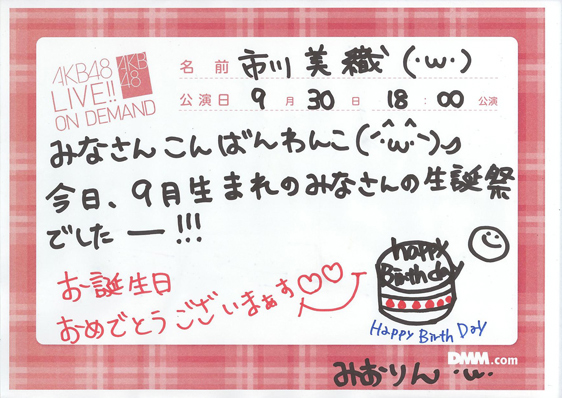 AKB48
LIVE!!
ON DEMAND
AKB
48
名 前 市川 美織 (・ω・)
公演日 9 月 30 日 18 : 00 公演
みなさんこんばんわんこ(^・ω・^)
今日、9月生まれのみなさんの生誕祭
でしたー!!!
お誕生日
おめでとうございまぁす♡♡
happy
Birthday
Happy Birth Day
DMM.com
みおりん ・ω・